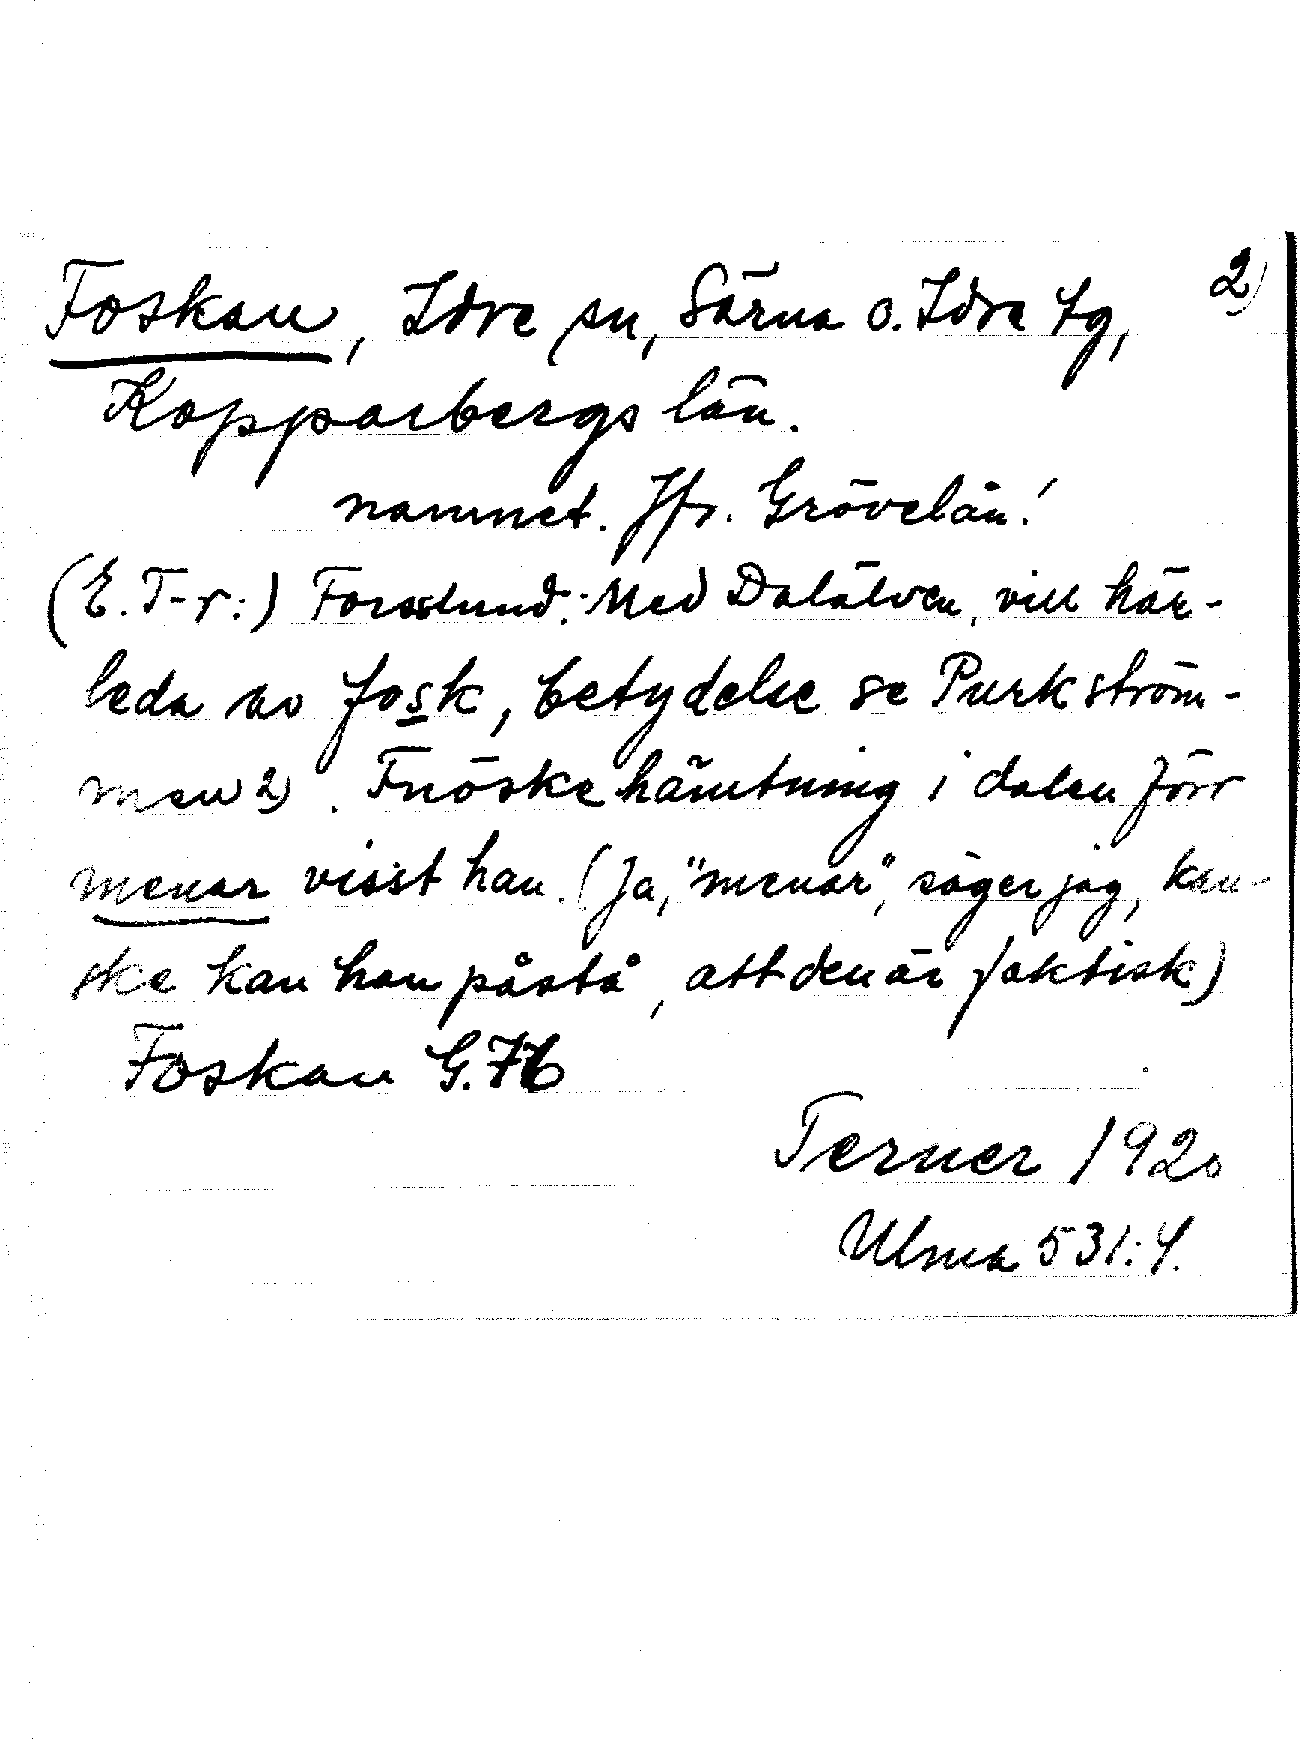 Foskan, Idre sn, Särna o. Idre tg, 2)
Kopparbergs län.
namnet. Jfr. Grövelån!
(E. T-r:) Forsslund: Med Dalälven, vill här-
leda av fosk, betydelse se Purkström-
men 2). Fnöskehämtning i dalen förr
menar visst han. (Ja, "menar", säger jag, kan-
ske kan han påstå, att den är faktisk)
Foskan G.76
Terner 1920
Ulma 531:4.